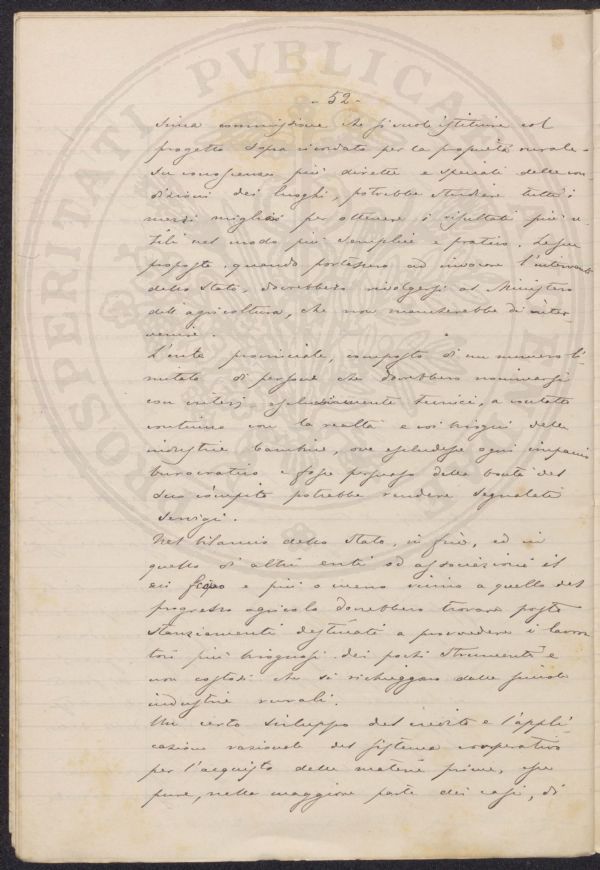 - 52 -
sima commissione che si vuole istituire col
progetto sopra ricordato per la proprietà rurale.
Su conoscenze più dirette e speciali delle con-
dizioni dei luoghi, potrebbe studiare tutti i
mezzi migliori per ottenere i risultati più u-
tili nel modo più semplice e pratico. Le sue
proposte, quando portassero ad invocare l'intervento
dello Stato, dovrebbero rivolgersi al Ministero
dell'agricoltura, che non mancherebbe di inter-
venire.
L'ente provinciale, composto di un numero li-
mitato di persone che dovrebbero nominarsi
con criterj esclusivamente tecnici, a contatto
continuo con la realtà e coi bisogni delle
industrie bambine, ove escludesse ogni impaccio
burocratico e fosse persuaso della bontà del
suo cómpito potrebbe rendere segnalati
servigi.
Nel bilancio dello Stato, in fine, ed in
quello di altri enti od associazioni il
cui scopo e più o meno vicino a quello del
progresso agricolo dovrebbero trovare posto
stanziamenti destinati a provvedere i lavora
tori più bisognosi dei pochi strumenti e
non costosi che si richieggano dalle piccole
industrie rurali.
Un certo sviluppo del credito e l'appli-
cazione razionale del sistema cooperativo
per l'acquisto delle materie prime, che
pure, nella maggiore parte dei casi, di
PROSPERITATI PVBLICAE